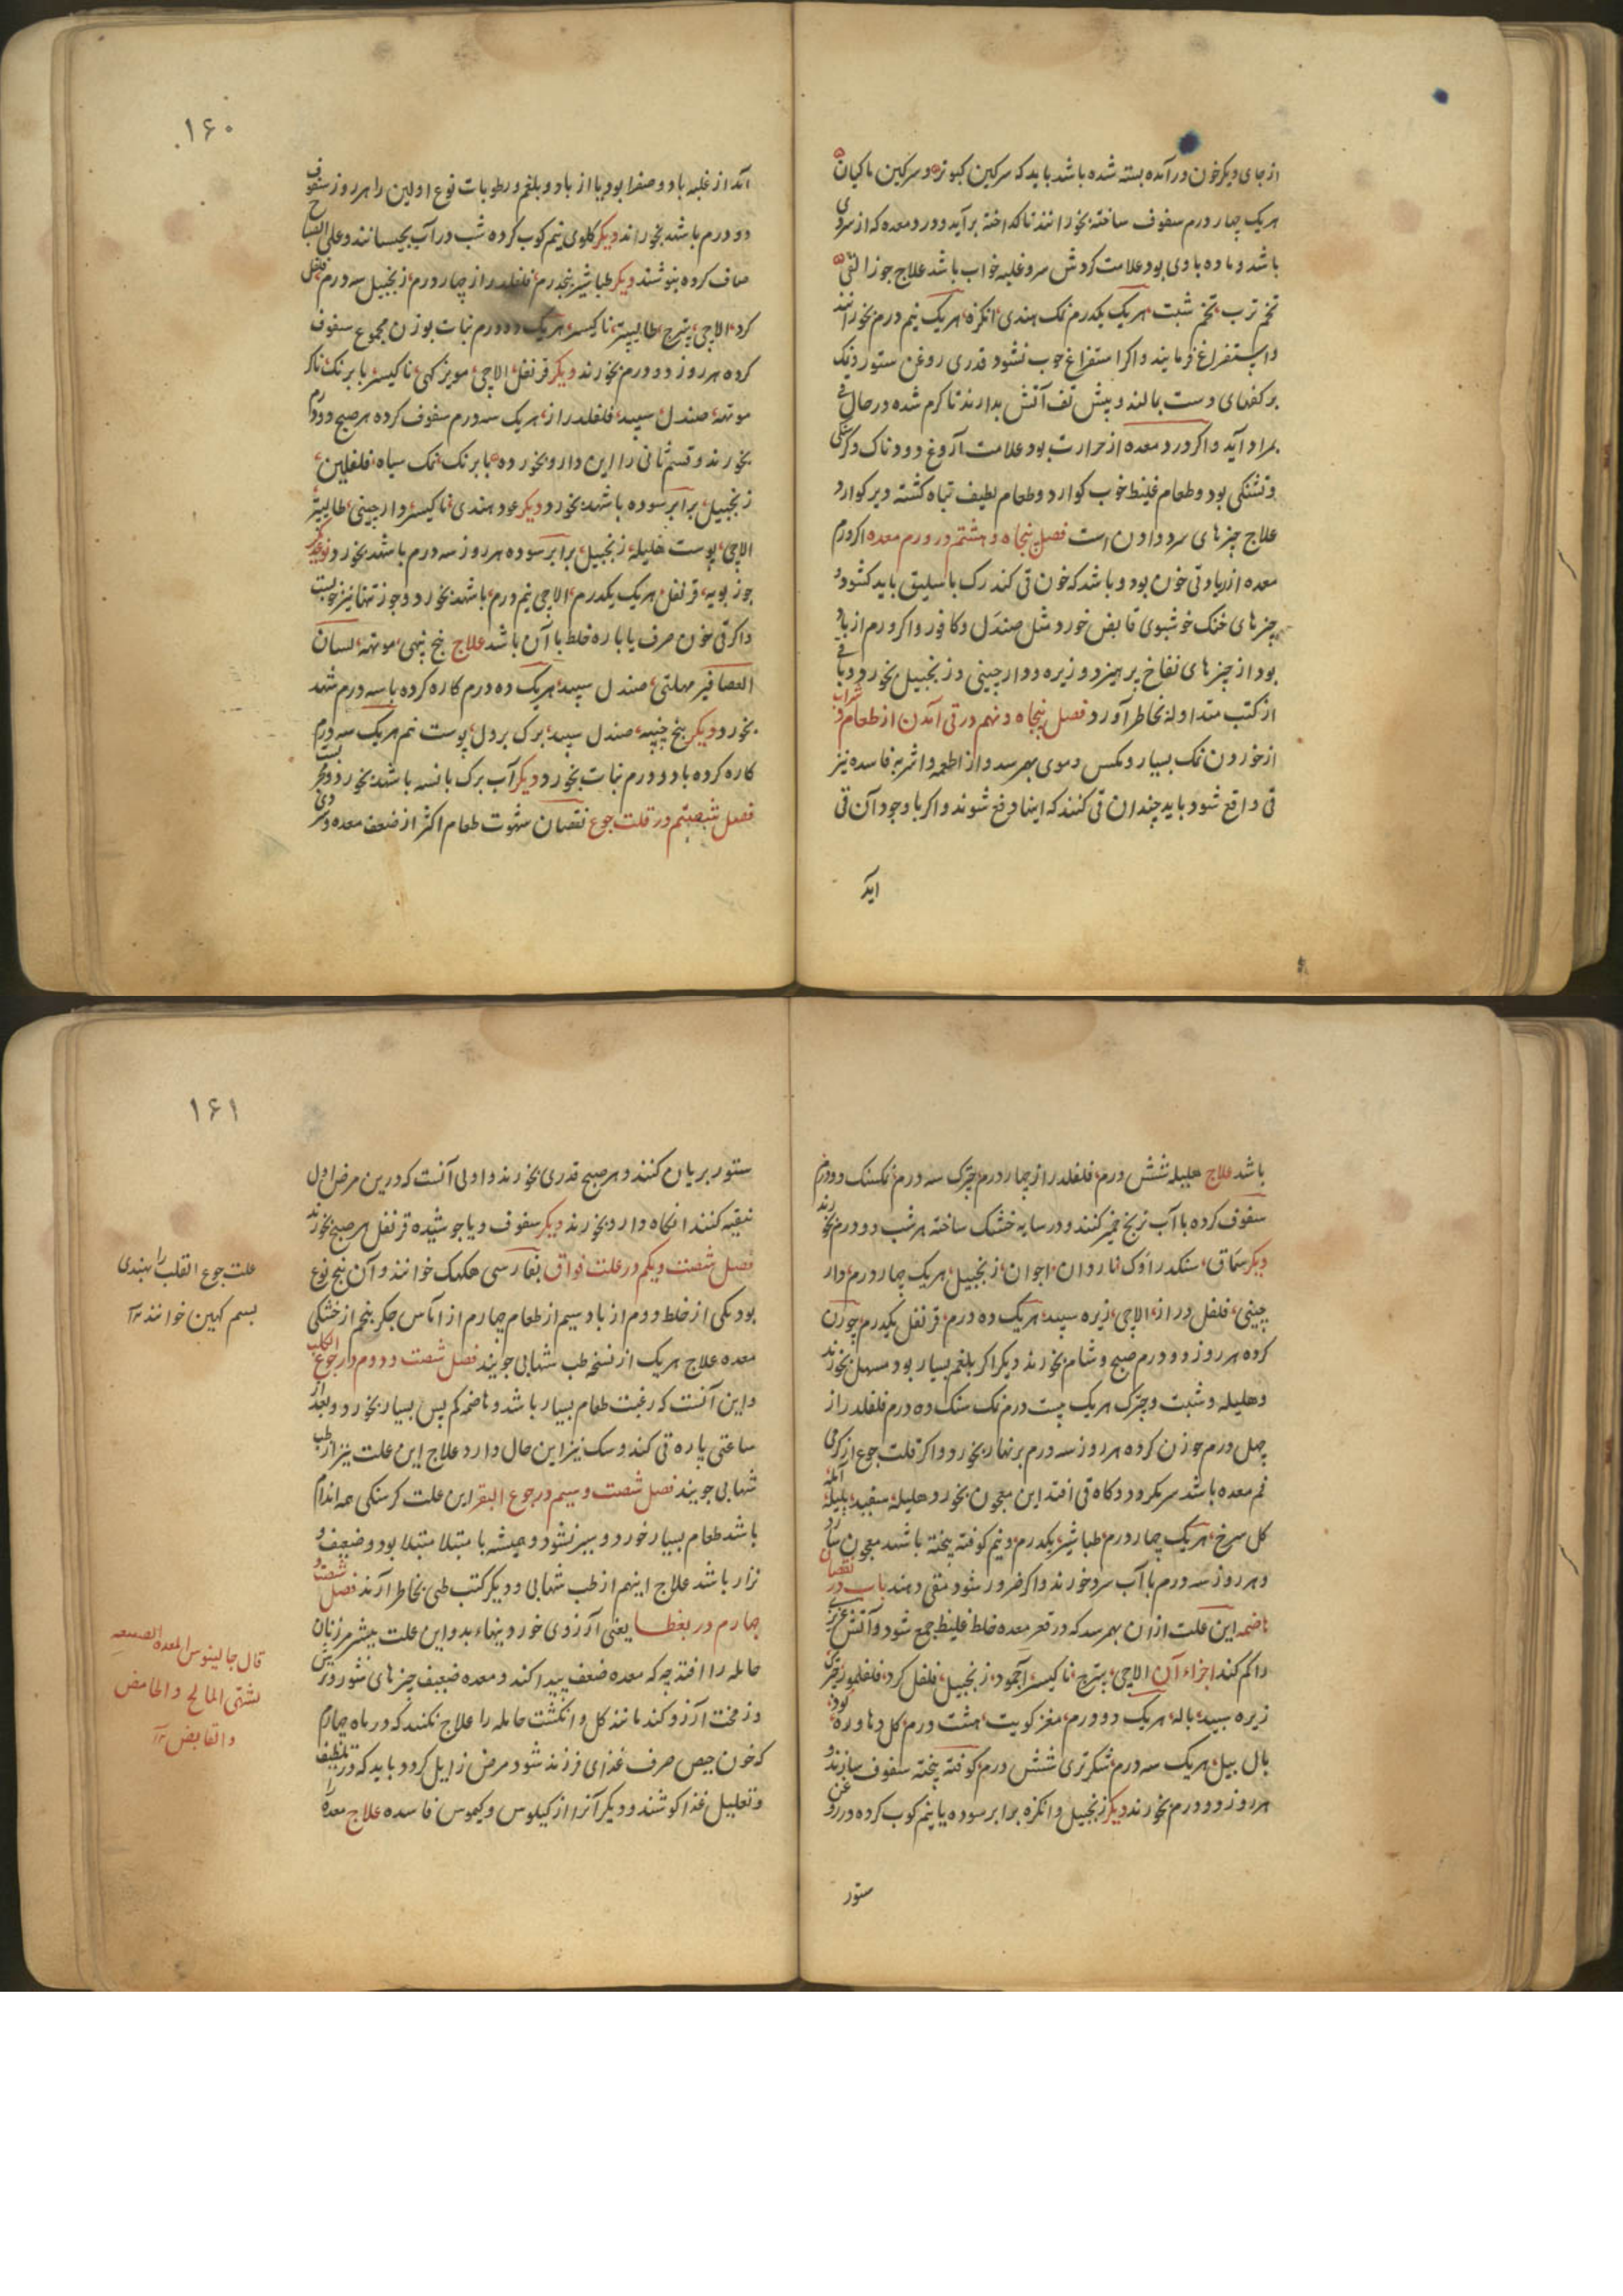 از جای دیکر خون درآمده بسته شده باشد باید که سرکین کبوتر و سرکین ماکیان
هریک چهار درم سفوف ساخته بخورانند تا کداخته برآید و درد معده که از سردی
باشد و ماده بادی بود علامت کردش سر و غلبه خواب باشد علاج جوز القی
تخم ترب تخم شبت هریک یکدرم نمک هندی انکزه هریک نیم درم بخورانند
و استفراغ فرمایند و اکر استفراغ خوب نشود قدری روغن ستور و نمک
بر کفهای دست بمالند و پیش تف آتش بدارند تا کرم شده در حال قی
بمراد آید و اکر درد معده از حرارت بود علامت آروغ دودناک و کرسنکی
و تشنکی بود و طعام غلیظ خوب کوارد و طعام لطیف تباه کشته دیر کوارد
علاج چیزهای سرد دادن است فصل پنجاه و هشتم در ورم معده اکر ورم
معده از زیادتی خون بود و باشد که خون قی کند رک باسلیق باید کشود و
چیزهای خنک خوشبوی قابض خورد مثل صندل و کافور و اکر ورم از باد
بود از چیزهای نفاخ پرهیزد و زیره و دارچینی و زنجبیل بخورد و باقی
از کتب متداوله بخاطر آورد فصل پنجاه و نهم در قی آمدن از طعام و شراب
از خوردن نمک بسیار و مکس و موی بهم رسد و از اطعمه و اشربه فاسده نیز
قی واقع شود باید چندان قی کنند که اینها دفع شوند و اکر با وجود آن قی
آید
۱۶۰
آمد از غلبه باد و صفرا بود یا از باد و بلغم و رطوبات نوع اولین را هر روز سفوف
دو درم باشد بخوراند دیکر کلوی نیم کوب کرده شب در آب بخیسانند و علی الصباح
صاف کرده بنوشند دیکر طباشیر پنجدرم فلفلدراز چهار درم زنجبیل سه درم فلفل
کرد الاچی پترج طالیپتر ناکیسر هریک دو درم نبات بوزن مجموع سفوف
کرده هر روز دو درم بخورند دیکر قرنفل الاچی مویز کهی ناکیسر بابرنک ناکر
موتهه صندل سپید فلفلدراز هریک سه درم سفوف کرده هر صبح دو درم
بخورند و قسم ثانی را این دارو بخور ده بابرنک نمک سیاه فلفلین
زنجبیل برابر سوده باشهد بخورد دیکر عود هندی ناکیسر دارچینی طالیپتر
الاچی پوست هلیله زنجبیل برابر سوده هر روز سه درم باشهد بخورد نوعدیکر
جوز بویه قرنفل هریک یکدرم الاچی نیم درم باشهد بخورد و جوز تنها نیز خوبست
و اکر قی خون صرف یا پاره خلط با آن باشد علاج موتهه لسان
العصافیر صندل سپید هریک ده درم کاره کرده با سه درم شهد
بخورد دیکر بیخ چنپه صندل سپید برک پوست نم هریک سه درم
کاره کرده با دو درم نبات بخورد دیکر آب برک بانسه باشهد بخورد
فصل شصتم در قلت جوع نقصان شهوت طعام اکثر از ضعف معده و سردی
باشد علاج هلیله شش درم فلفلدراز چهار درم چترک سه درم نمکسنک دو درم
سفوف کرده با آب ترنج خمیر کنند و در سایه خشک ساخته هر شب دو درم بخورند
دیکر سماق اناردان اجوان زنجبیل هریک چهار درم دار
چینی فلفل دراز الاچی زیره سپید هریک ده درم قرنفل یکدرم چورن
کرده هر روز دو درم صبح و شام بخورند دیکر اکر بلغم بسیار بود مسهل بخورند
و هلیله و شبت و چترک هریک بیست درم نمک سنک ده درم فلفلدراز
چهل درم چورن کرده هر روز سه درم بر نهار بخورد و اکر قلت جوع از کرمی
فم معده باشد سر بکردد و کاه قی افتد این معجون بخورد هلیله سفید بلیله آمله
کل سرخ هریک چهار درم طباشیر یکدرم و نیم کوفته پخته باشهد معجون سازد
و هر روز سه درم با آب سرد خورند و اکر ضرور شود منقی دهند باب در نقصان
هاضمه این علت از آن بهم رسد که در قعر معده خلط غلیظ جمع شود و آتش غریزی
را کم کند اجزاء آن الاچی پترج ناکیسر اجمود زنجبیل فلفل کرد فلفلمویه چترک
زیره سپید باله هریک دو درم مغز کویت هشت درم کل دهاوره
بال بیل هریک سه درم شکر تری شش درم کوفته پخته سفوف سازند و
هر روز دو درم بخورند دیکر زنجبیل و انکزه برابر سوده یا نیم کوب کرده در روغن
ستور
۱۶۱
ستور بریان کنند و هر صبح قدری بخورند و اولی آنست که درین مرض اول
تنقیه کنند انکاه دارو بخورند دیکر سفوف و یا جوشیده قرنفل هر صبح بخورند
فصل شصت و یکم در علت فواق بفارسی هکهک خوانند و آن پنج نوع
بود یکی از خلط دوم از باد سیم از طعام چهارم از آماس جکر پنجم از خشکی
معده علاج هریک از نسخه طب شهابی جویند فصل شصت و دوم در جوع الکلب
و این آنست که رغبت طعام بسیار باشد و هاضمه کم پس بسیار بخورد و بعد از
ساعتی پاره قی کند و سک نیز این حال دارد علاج این علت نیز از طب
شهابی جویند فصل شصت و سیم در جوع البقر این علت کرسنکی همه اندام
باشد طعام بسیار خورد و سیر نشود و همیشه با مبتلا مبتلا بود و ضعیف و
نزار باشد علاج اینهم از طب شهابی و دیکر کتب طبی بخاطر آرند فصل شصت و
چهارم در بغطا یعنی آرزوی خوردنیهاء بد و این علت بیشتر مر زنان
حامله را افتد چه که معده ضعف پیدا کند و معده ضعیف چیزهای شور و ترش
و زمخت آرزو کند مانند کل و انکشت حامله را علاج نکنند که در ماه چهارم
که خون حیض صرف غذای فرزند شود مرض زایل کردد باید که در تلطیف
و تقلیل غذا کوشند و دیکر آنرا از کیلوس و کیموس فاسده علاج معده را
علت جوع القلب را بهندی
بسم کهین خوانند ۱۲
قال جالینوس المعده الضعیفه
یشتهی المالح و الحامض
و القابض ۱۲